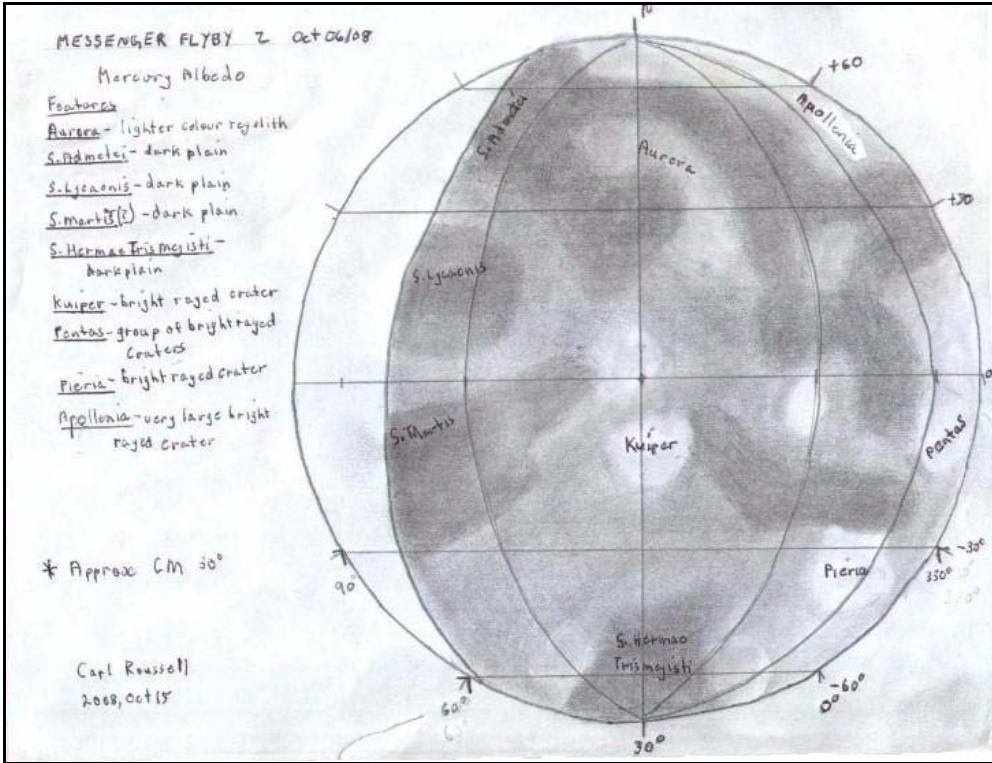 MESSENGER FLYBY 2 Oct 06/08
Mercury Albedo
Features
Aurora - lighter colour regolith
S. Admetei - dark plain
S. Lycaonis - dark plain
S. Martis(?) - dark plain
S. Hermae Trismejisti -
dark plain
Kuiper - bright rayed crater
Pentas - group of bright rayed
Craters
Pieria - bright rayed crater
Apollonia - very large bright
rayed crater
* Approx CM 30°
Carl Roussell
2008, Oct 15
N
+60
Apollonia
S. Admetei
Aurora
+30
S. Lycaonis
0°
S. Martis
Kuiper
Pentas
-30°
Pieria
350°
90°
S. Hermae
Trismejisti
-60°
0°
60°
30°